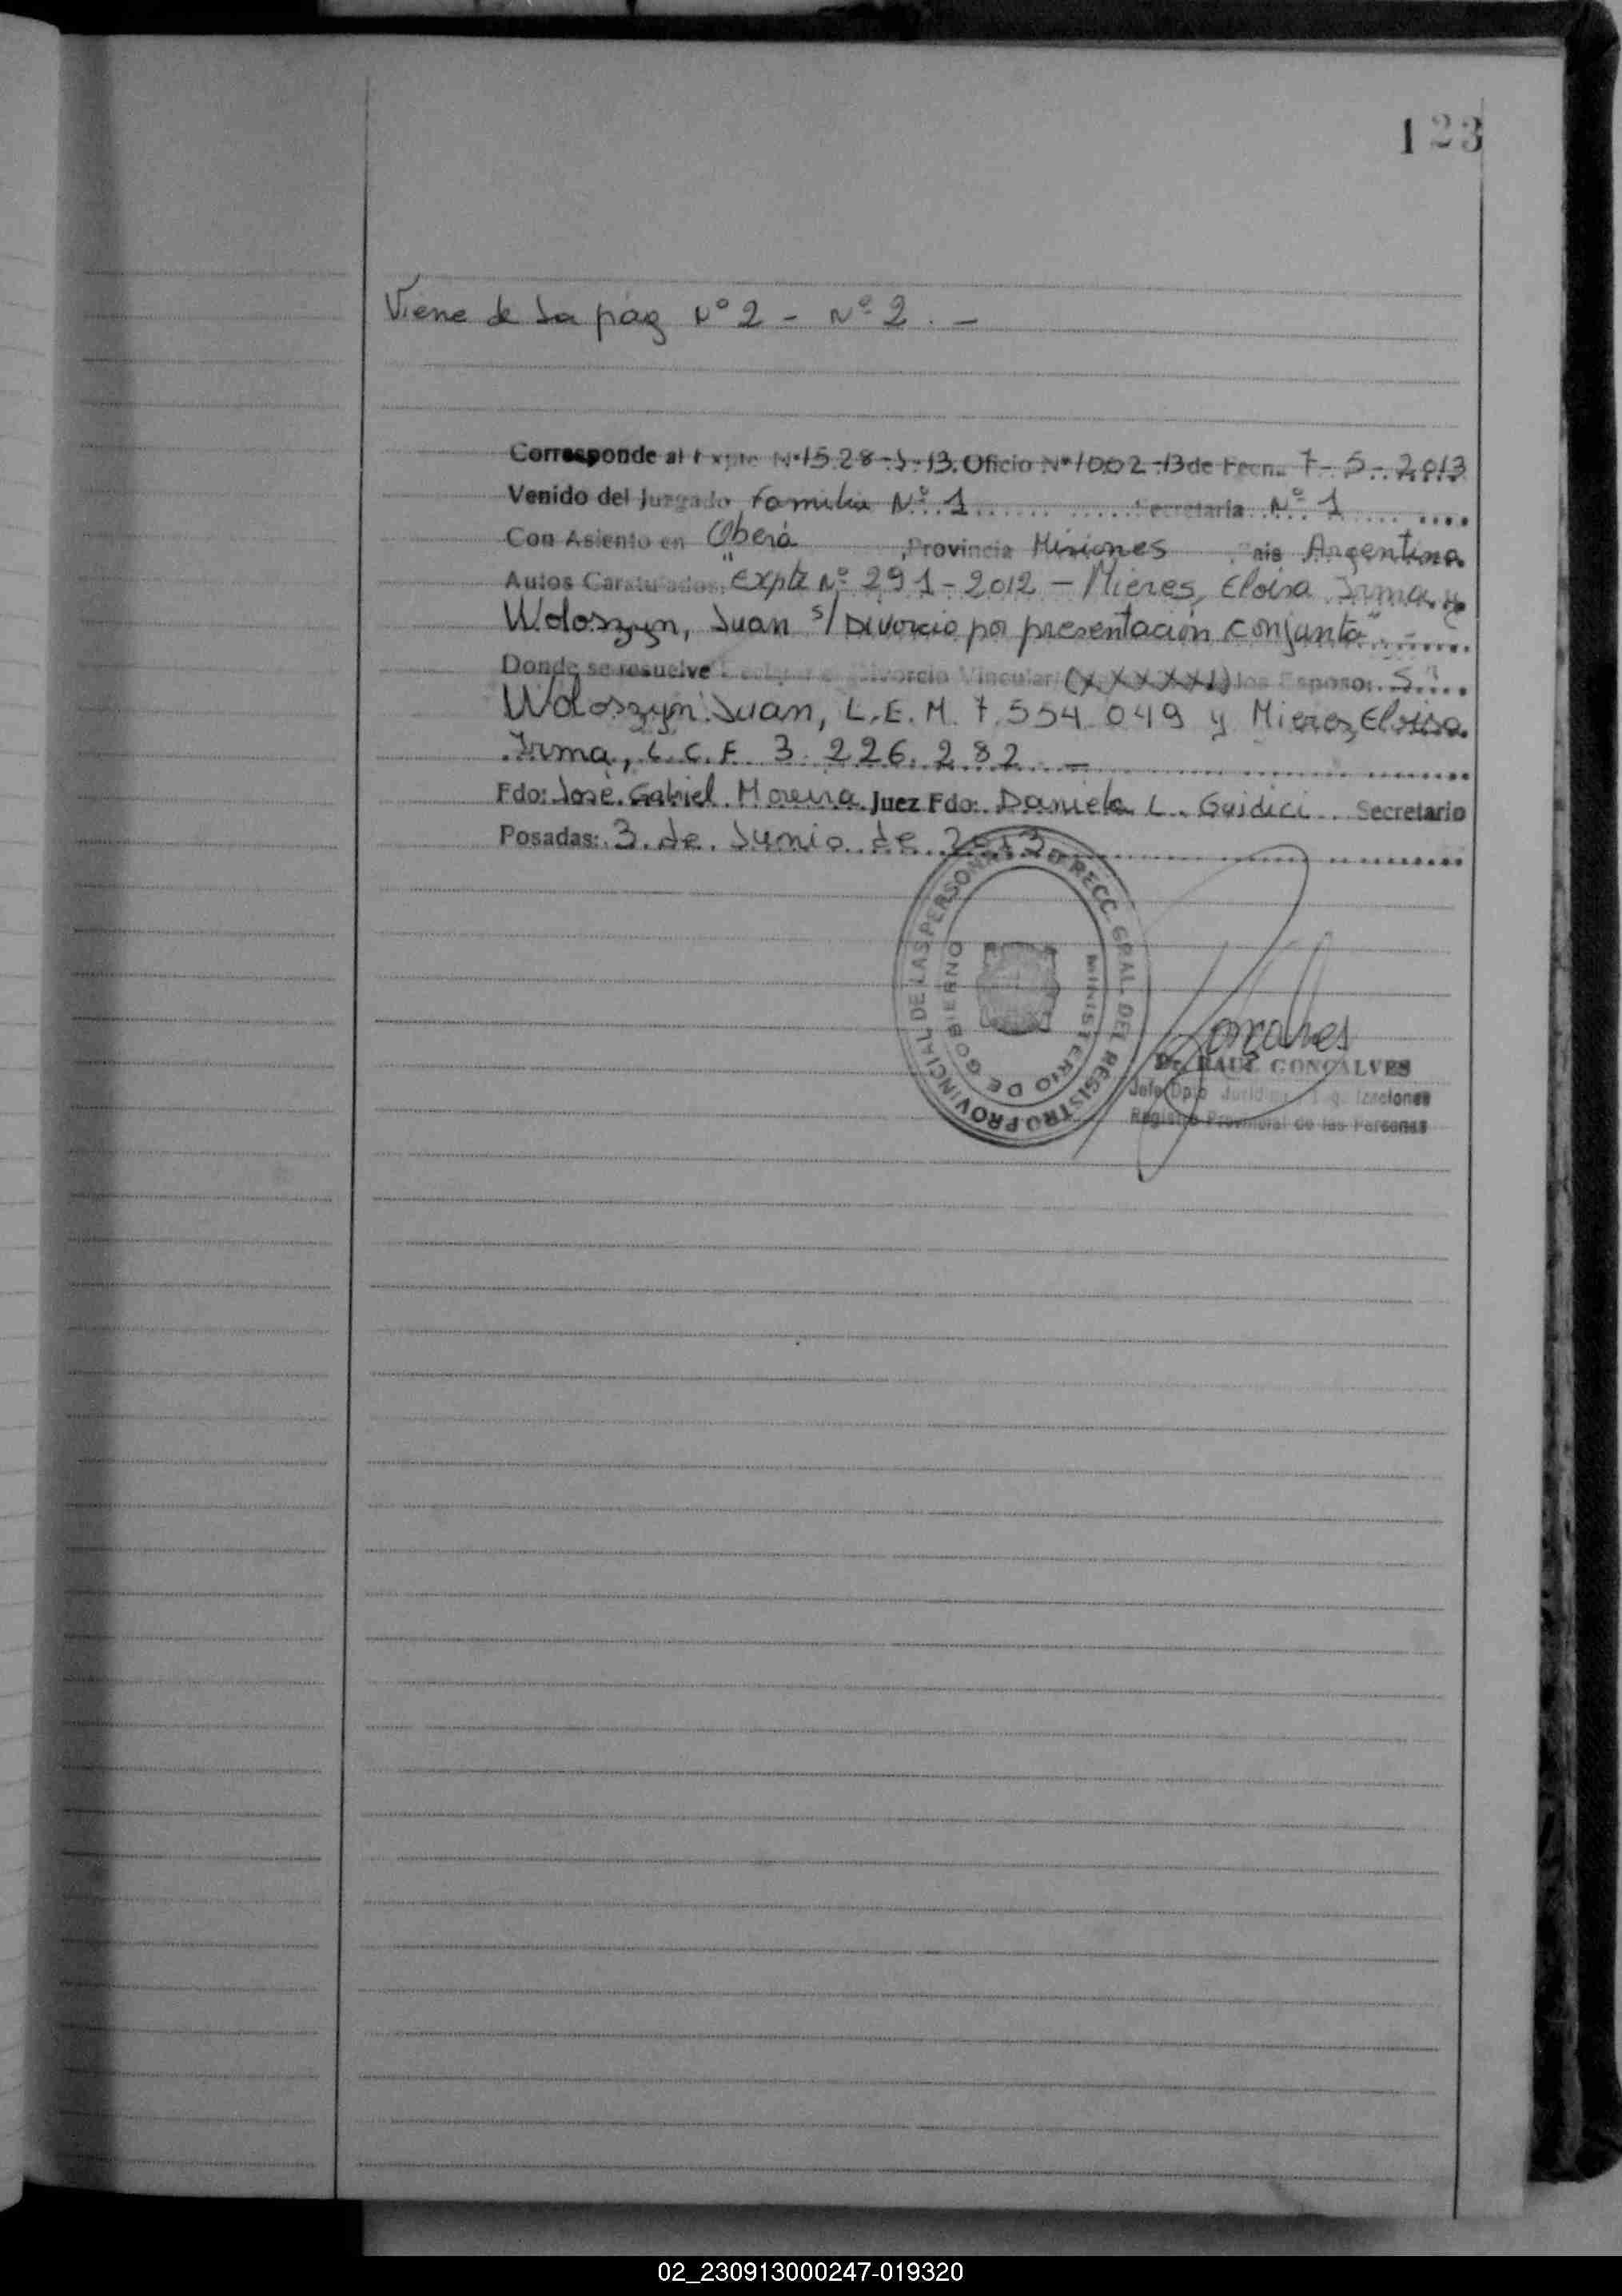 123
Viene de la pág Nº 2 - Nº 2. -
Corresponde al Expte Nº 1528-J-13. Oficio Nº 1002-13 de Fecha 7-5-2013
Venido del Juzgado Familia Nº 1 Secretaria Nº 1
Con Asiento en Oberá, Provincia Misiones Pais Argentina
Autos Caratulados, "Expte Nº 291-2012 - Mieres, Eloisa Irma y
Woloszyn, Juan s/ Divorcio por presentación conjunta"
Donde se resuelve Declarar el Divorcio Vincular los Esposo: S
Woloszyn Juan, L.E.M. 7.554.049 y Mieres, Eloisa
Irma, L.C.F. 3.226.282 -
Fdo: José Gabriel Moreira Juez Fdo: Daniela L. Guidici Secretario
Posadas: 3 de Junio de 2013
DIRECC. GRAL. DEL REGISTRO PROVINCIAL DE LAS PERSONAS
MINISTERIO DE GOBIERNO
Goncalves
Dr. RAUL GONCALVES
Jefe Dpto Juridico
Registro Provincial de las Personas
02_230913000247-019320